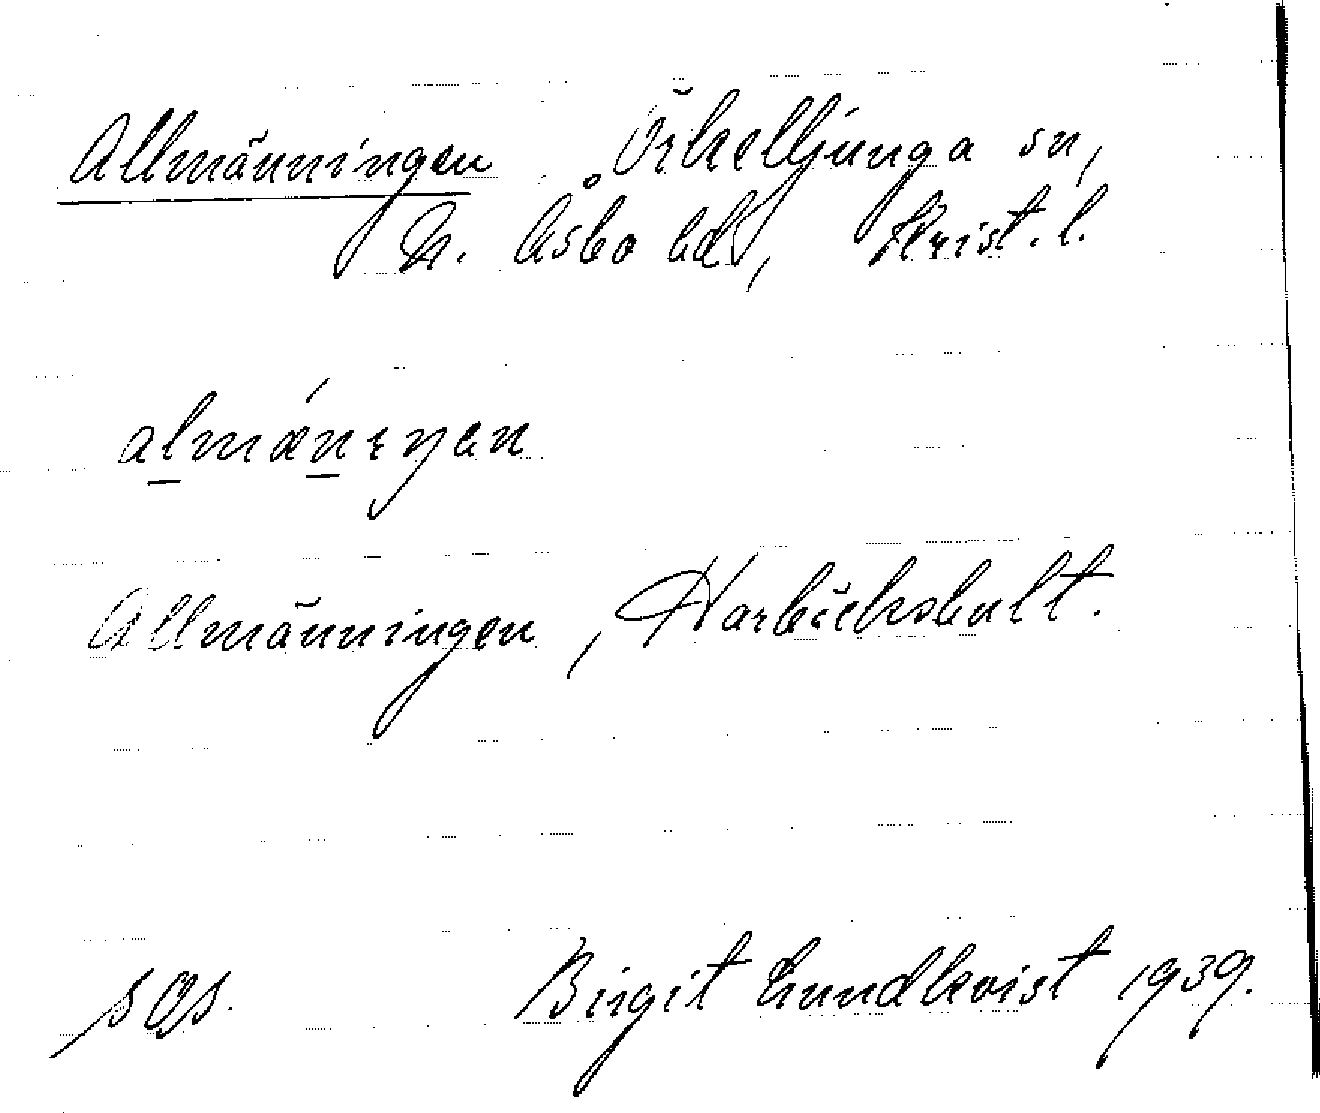 Allmänningen Örkelljunga sn,
N. Åsbo hd, Krist. l.
almǽnıŋen
Allmänningen, Harbäckshult.
sOs. Birgit Lundkvist 1939.